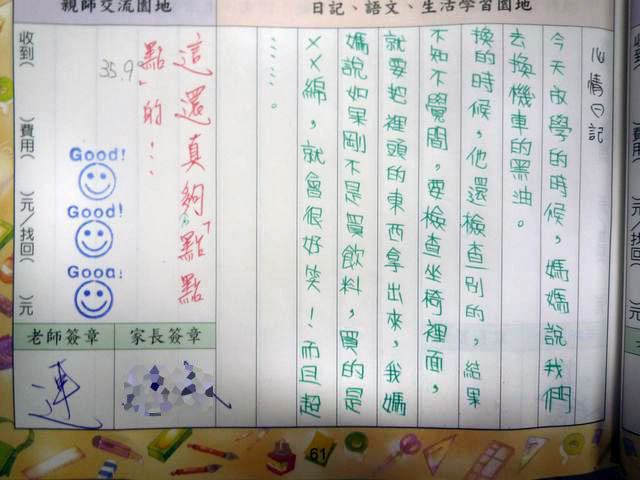 親師交流園地
日記、語文、生活學習園地
心情日記
今天放學的時候,媽媽說我們
去換機車的黑油。
換的時候,他還檢查別的,結果
不知不覺間,要檢查坐椅裡面,
就要把裡頭的東西拿出來,我媽
媽說如果剛不是買飲料,買的是
××綿,就會很好笑!而且超
⋯⋯。
這還真夠「點點
點」的!⋯
35.9
收到( )費用( )元/找回( )元
Good!
Good!
Good!
老師簽章
家長簽章
連
61